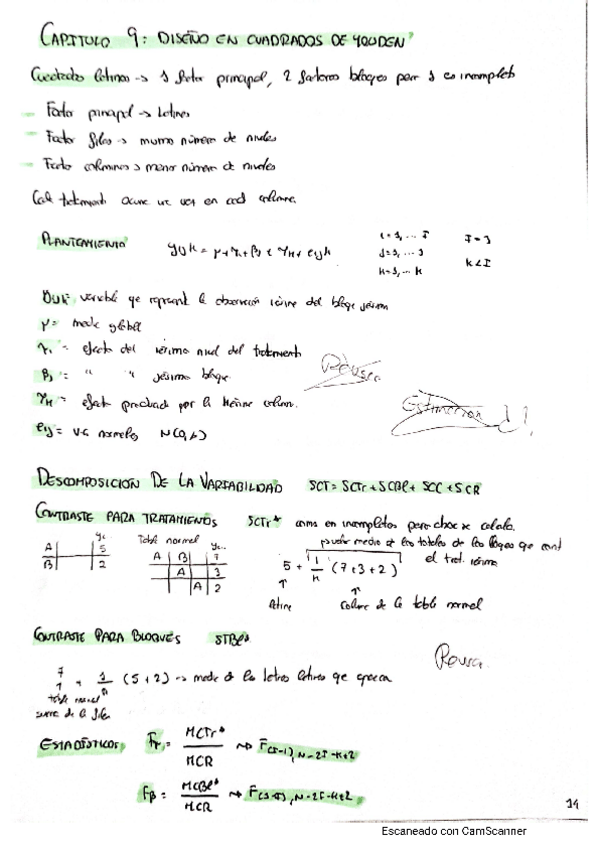 CAPITULO 9: DISEÑO EN CUADRADOS DE YOUDEN
Cuadrados latinos -> 1 factor principal, 2 factores bloques pero 1 es incompleto
- Factor principal -> Latinas
- Factor filas -> mismo número de niveles
- Factor columnas -> menor número de niveles
Cada tratamiento ocurre una vez en cada columna.
PLANTEAMIENTO yijk = μ + τi + βj + γk + eijk
i = 1, ... I
j = 1, ... J
k = 1, ... K
I = J
K < I
yijk: variable que representa la observación iésima del bloque jésimo
μ = media global
τi = efecto del iésimo nivel del tratamiento
βj = " " jésimo bloque
γk = efecto producido por la késima column.
eij = v.a normales
Estimacion
DESCOMPOSICION DE LA VARIABILIDAD SCT = SCTr + SCBl + SCC + SCR
CONTRASTE PARA TRATAMIENTOS SCTr* como en incompletos pero
y los totales de los bloques que
el trat. iésimo
Tabla normal
A 5
B 2
A B 7
A 3
A 2
5 + 1/K (7+3+2)
latina
de la tabla normal
CONTRASTE PARA BLOQUES
(5+2) -> media de las letras latinas que aparecen
tabla normal
de la fila
ESTADÍSTICOS Fτ = MCTr* / MCR -> F(I-1), N-2I-K+2
Fβ = MCBl* / MCR -> N-2I-K+2
14
Escaneado con CamScanner